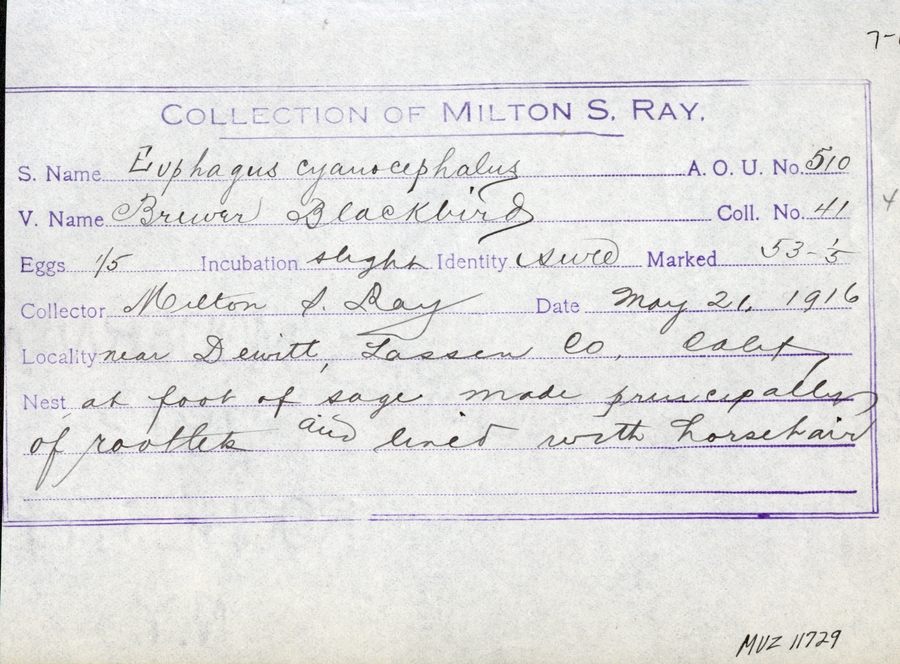 COLLECTION OF MILTON S. RAY.
S. Name Euphagus cyanocephalus A. O. U. No. 510
V. Name Brewer Blackbird Coll. No. 41
Eggs 1/5 Incubation slight Identity sure Marked 53-1/5
Collector Milton S. Ray Date May 21, 1916
Locality near Dewitt, Lassen Co, Calif
Nest at foot of sage made principally
of rootlets and lined with horsehair
MVZ 11729